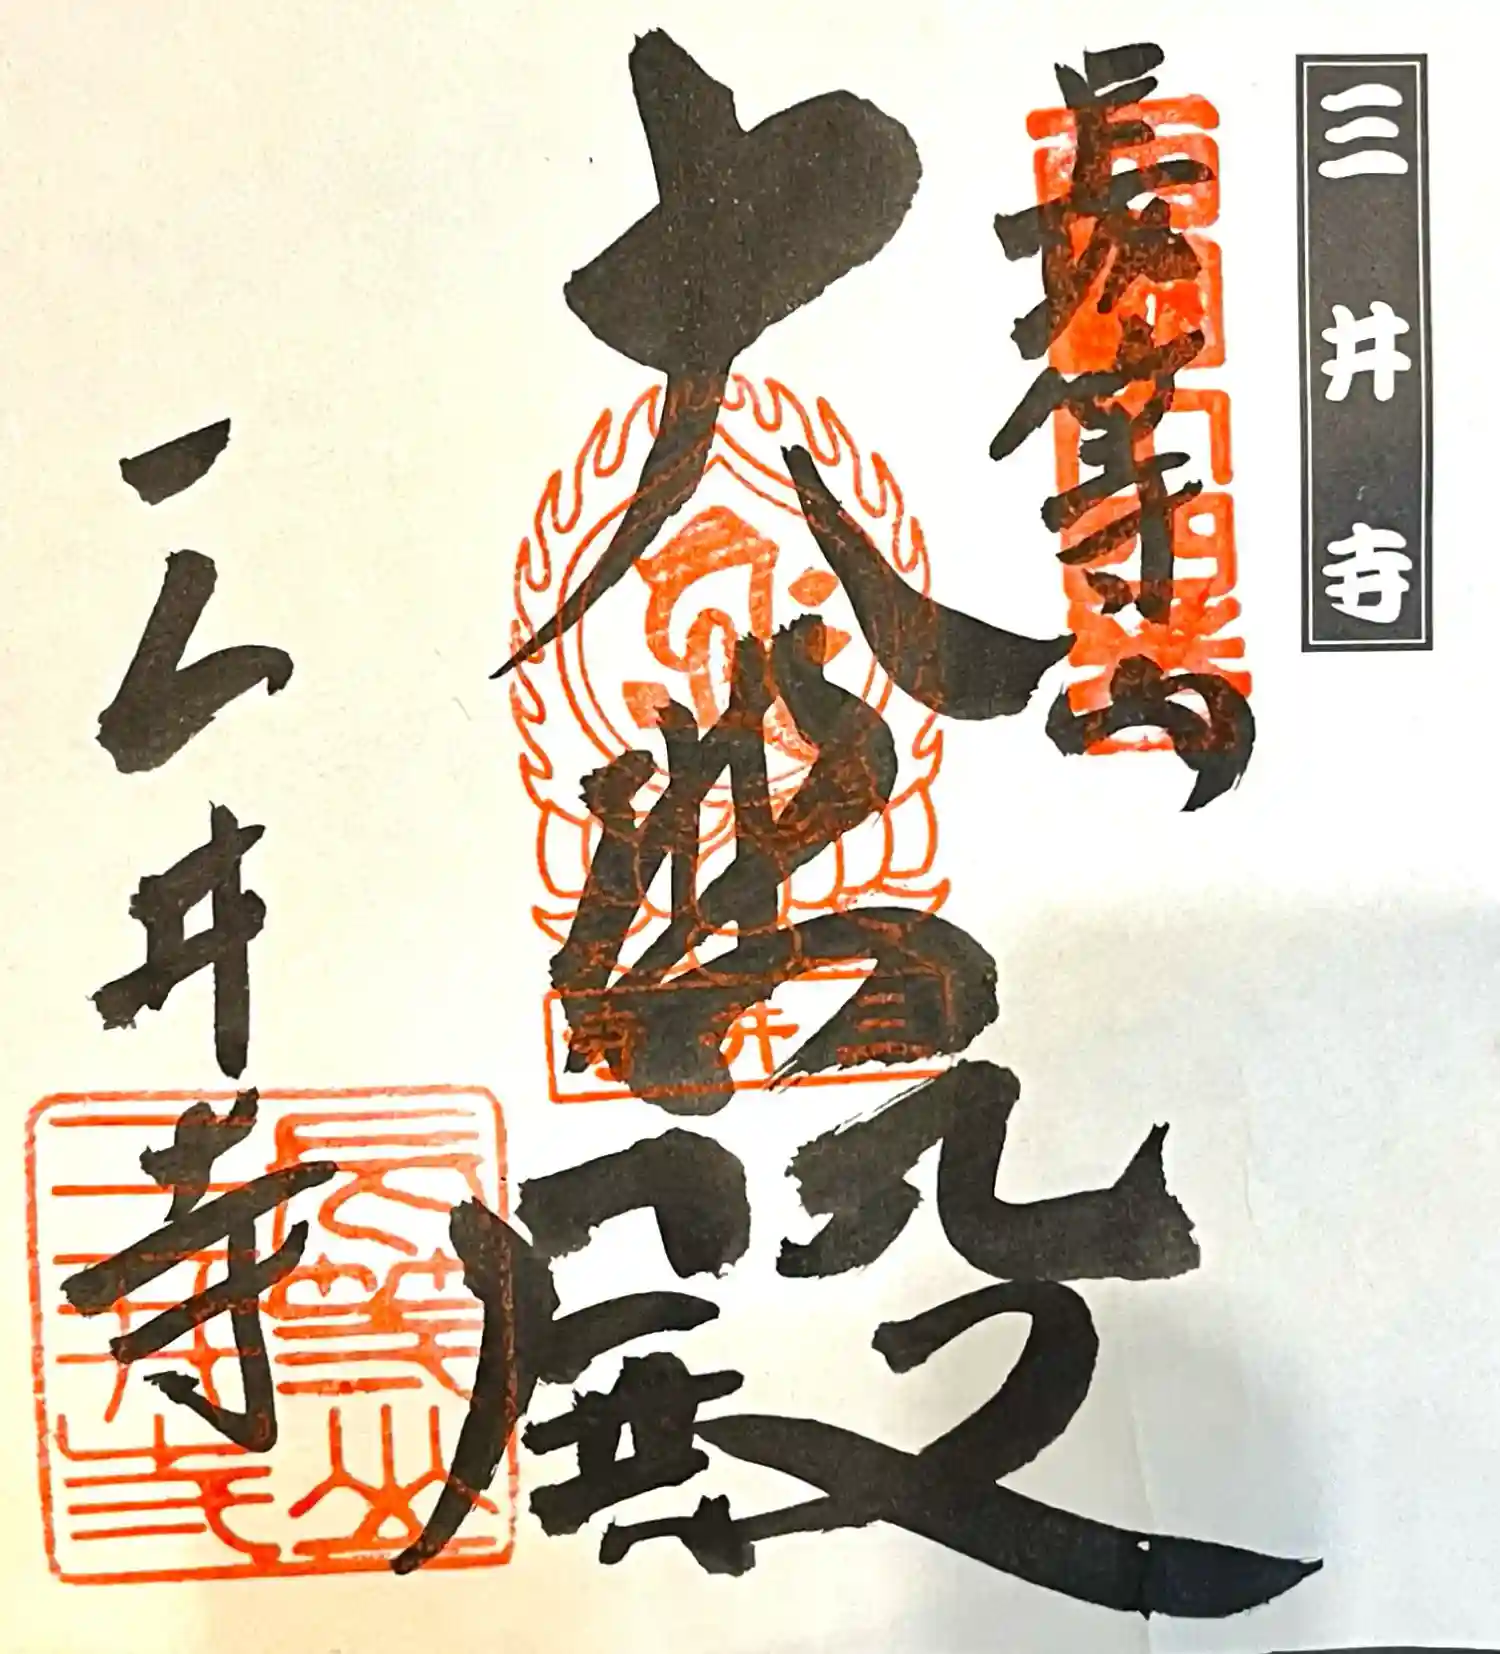 三井寺
長等山
大悲殿
三井寺
三井寺
長等山
三井寺